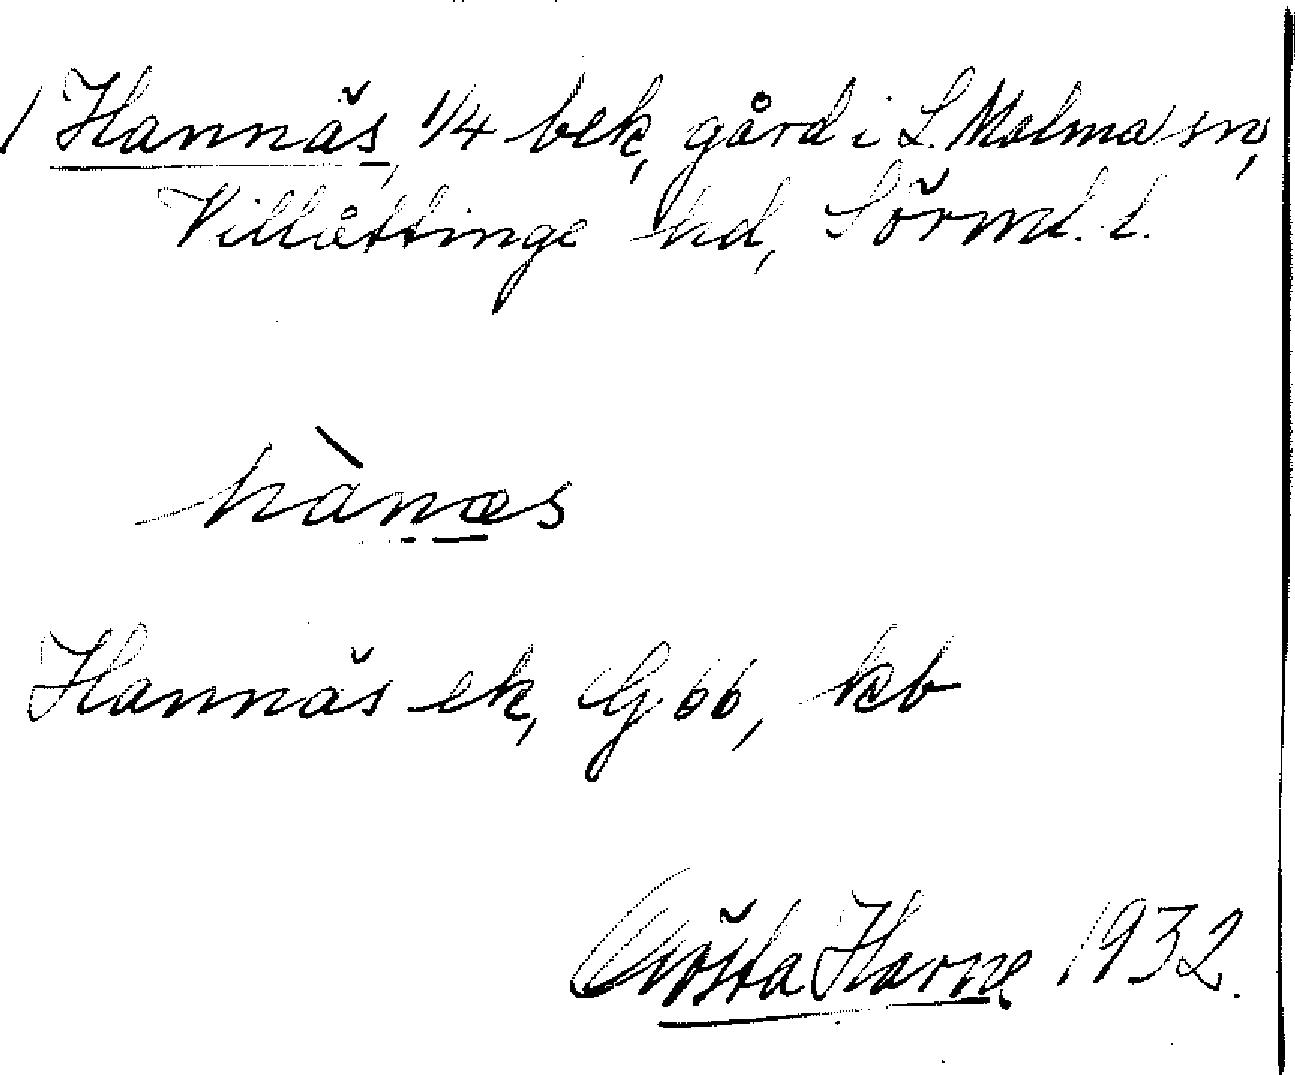 / Hannäs, 1/4 bek, gård i L. Malma sn,
Villåttinge hd, Sörml. l.
hànæs
Hannäs ek, G 66, kb
Gösta Harne 1932.